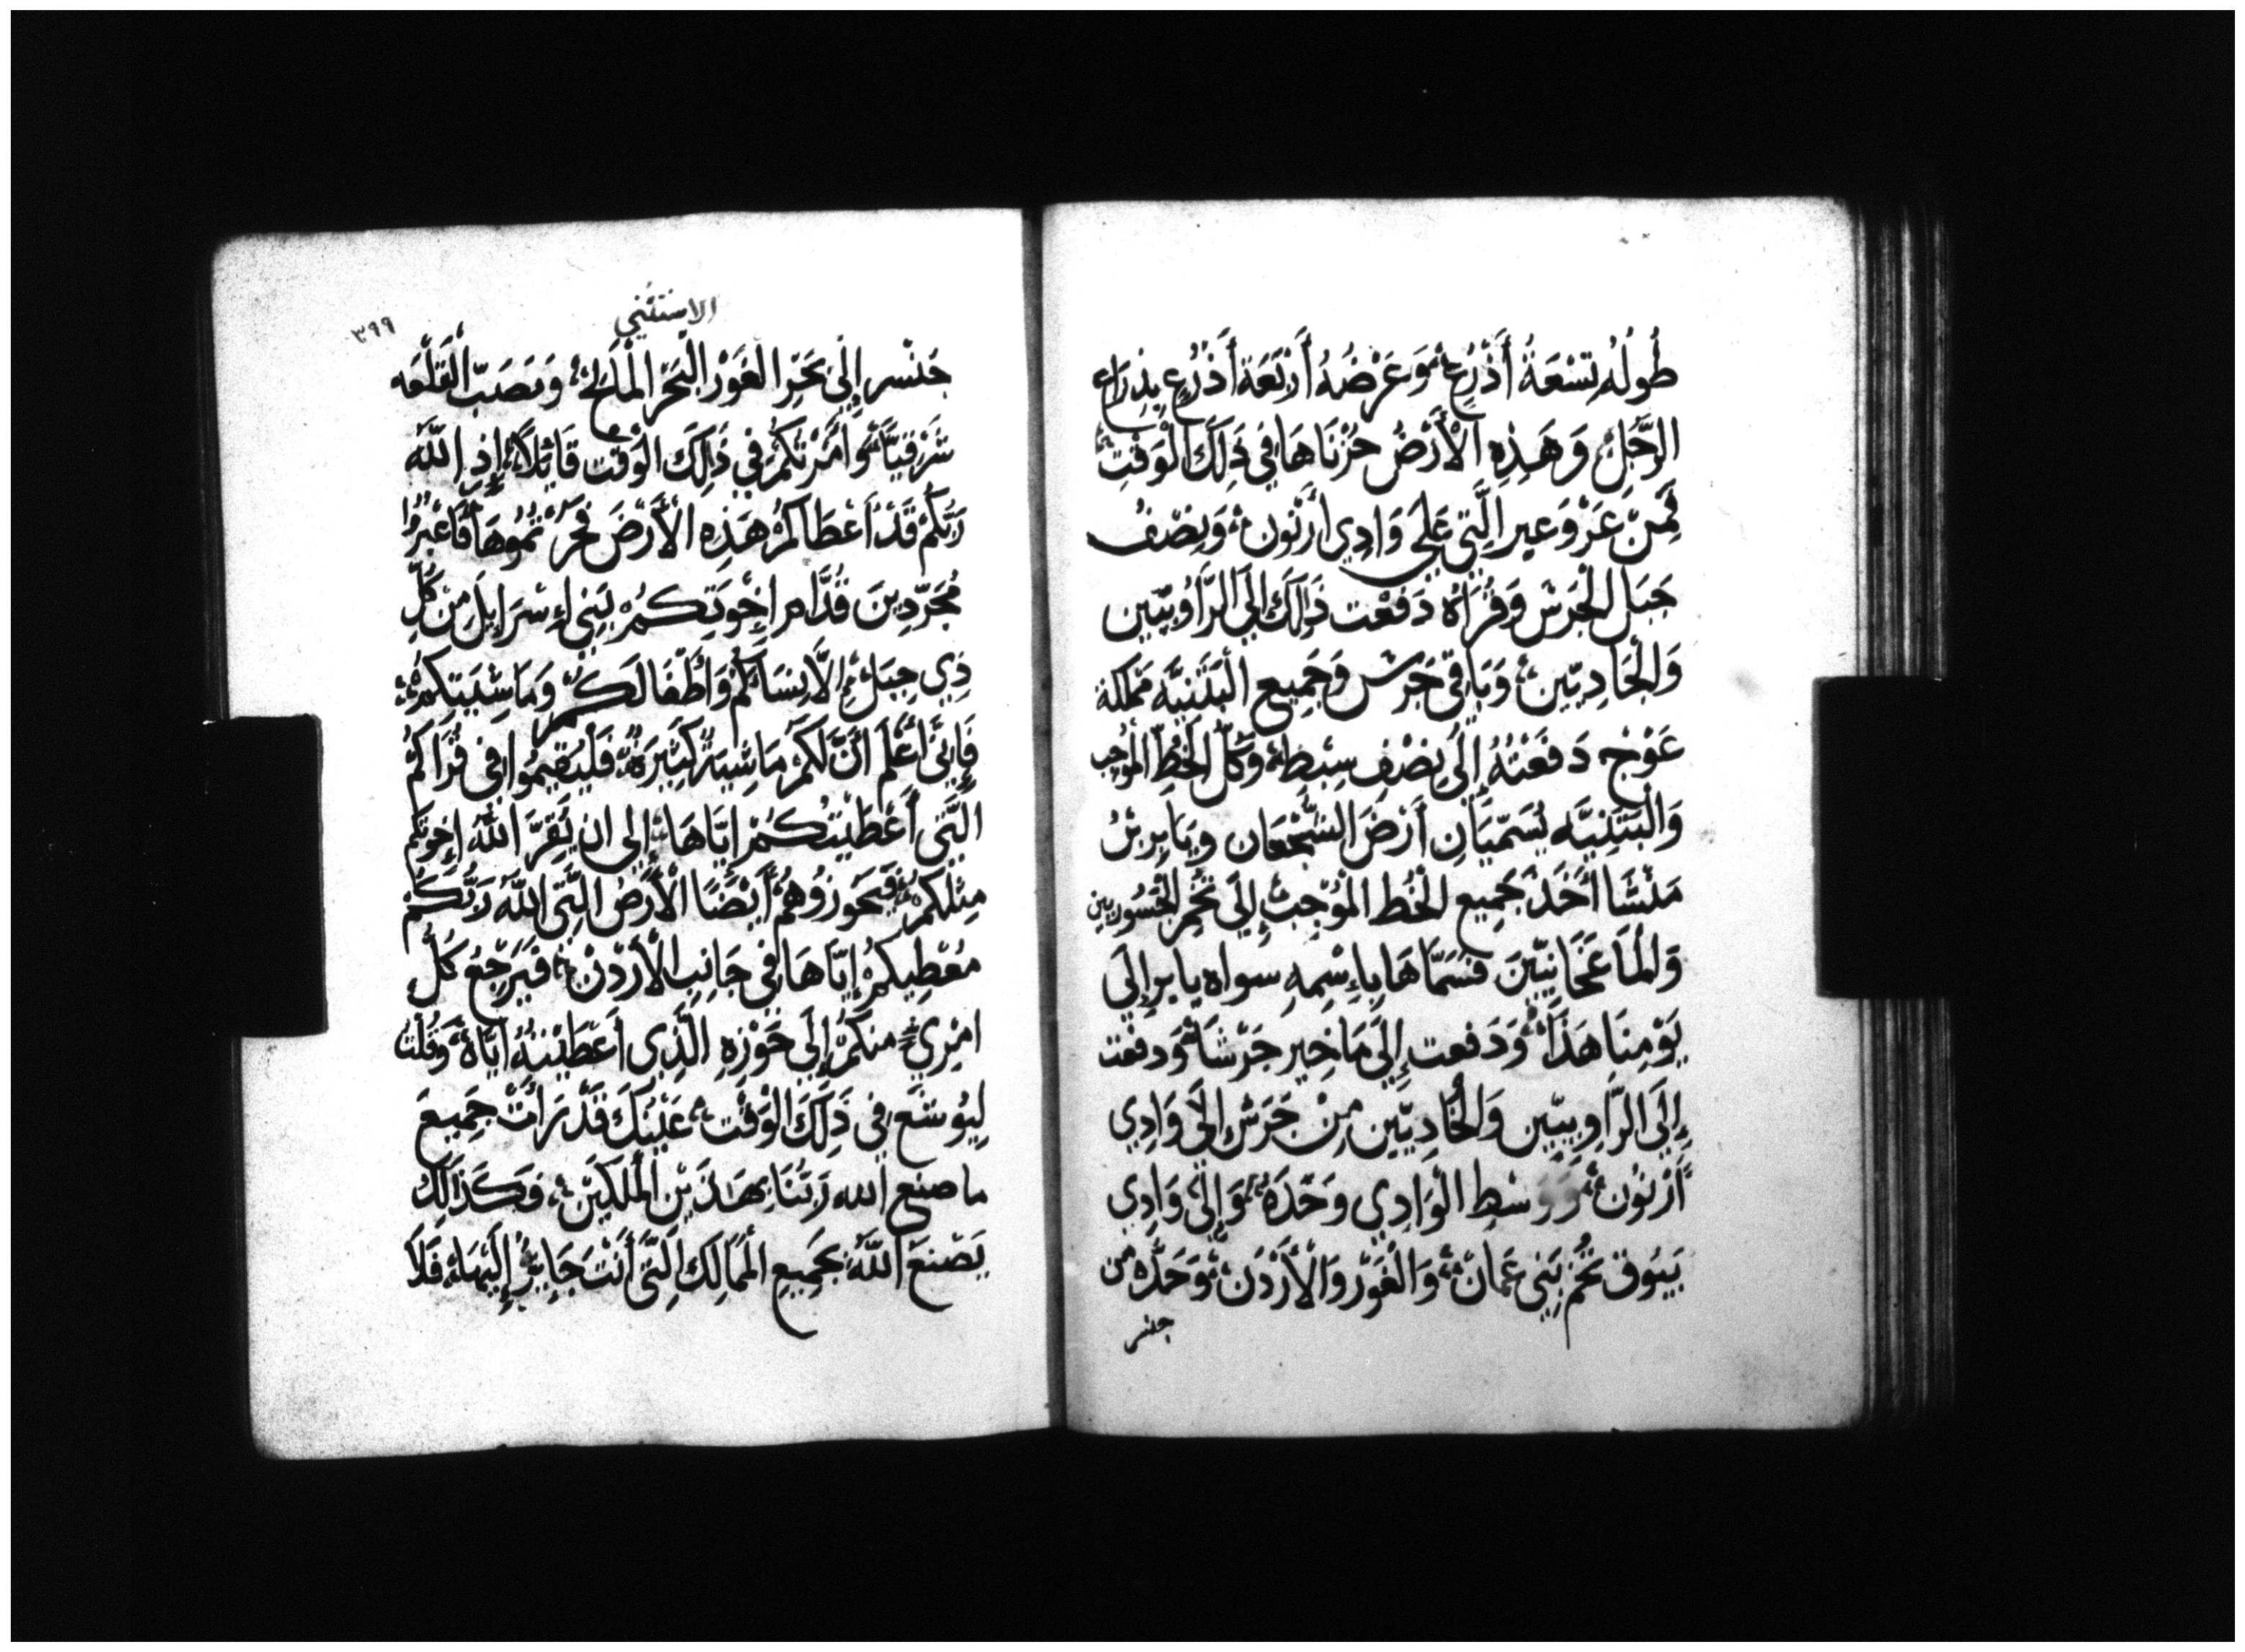 طُولُهُ تِسْعَةُ أَذْرُعٍ وَعَرْضُهُ أَرْبَعَة أَذْرُعٍ بِذِرَاعِ
الرَّجُلِ وَهَذِهِ الْأَرْضُ حُزْنَاهَا فِي ذَلِكَ الْوَقْتِ
فَمِنْ عَرْوَعير الَّتِي عَلَى وَادِي أَرْنُون وَنِصْفُ
جَبَل الْجَرَش وَقُرَاهُ دَفَعْت ذَلِكَ إِلَى الرَّأُوبِيِّين
وَالْجَادِيِّين وَبَاقِي جَرَش وَجَمِيع الْبَثَنِيَّه مَمْلَكة
عَوْج دَفَعْتُهُ إِلَى نِصْفِ سِبْطِ وَكُلّ الْخُطِّ الْمُوجِب
وَالْبَثَنِيَّه يُسَمَّيَانِ أَرْضَ الشُّجْعَان وَيَايِر بْنُ
مَنَشَّا أَخَذَ جَمِيع الْخُط الْمُوْجِب إِلَى تُخُمِ الْجَسُورِيين
وَالْمَاعَخَانِيِّينَ فَسَمَّاهَا بِاءِسْمِهِ سواه يايرإِلَى
يَوْمِنَا هَذَا وَدَفعت إِلَى مَاخِير جَرْشَا وَدفعت
إِلَى الرَّاوِبِيِّين وَالْجَادِيِّين مِنْ جَرَش إِلَى وَادِي
أَرْنُون وَوَسْطِ الْوَادِي وَحَدّهُ وَإِلَى وَادِي
يَبُوق تُخُم بَنِي عَمَانْ وَالْغَوْر وَالْأَرْدُن وَحَدُّهُ من
جنسر
الاستثني
٣٩٩
جَنْسر إِلَى بَحْرِ الغَوْر الْبَحْرِ الْمَالِح وَمَصَبّ الْقَلْعَه
شَرْقِيَّا وَأَمَرْتُكُمْ فِي ذَلِكَ الْوَقْت قَائِلًا إِذِ اللَّه
رَبُّكُمْ قَدْ أَعْطَاكمْ هَذِهِ الْأَرْضَ فَحُزْتُمُوهَا فَاعْبُرُوا
مُجَرَّدِينَ قُدَّام إِخْوَتِكُمْ بَنِي إِسْرَايِلَ مِنْ كُلِّ
ذِي حِبَل إِلَّا نِسَاكُمْ وَأَطْفَالَكُمْ وَمَاشِيَتِكُمْ
فَإِنِّي أَعْلَم أَنَّ لَكُمْ مَاشِيَةً كَثِيرَةً فَلْيُقِيمُوا فِي قُرَاكُمُ
الَّتِي أَعْطَيْتُكُمْ إِيَّاهَا إِلى ان يُقِرَّ اللَّهُ إِخوتكم
مِثلكم فَيَحُوزُوهُمْ أَيْضًا الْأَرْضُ الَّتِي اللَّهَ رَبُّكُمْ
مُعْطِيكمْ إِيَّاهَا فِي جَانِبِ الْأَرْدُنْ فَيَرْجِعُ كُلُّ
امْرِيٍ منكمْ إِلَى حَوْزِهِ الَّذِي أَعْطَيْتُهُ اِيَّاهُ وَقُلْتُ
لِيُوشَع فِي ذَلِكَ الْوَقْت عَيْنَيْكَ قَدْ رَأَتْ جَمِيعَ
ما صنع الله رَبُّنَا بِهَذَيْنِ الْمَلَكَيْنِ فَكَذَلِكَ
يَصْنَعُ اللَّهُ بِجَمِيعِ الْمَمَالِكَ الَّتِي أَنْتَ جَايِزٌ إِلَيْهَا فَلَا